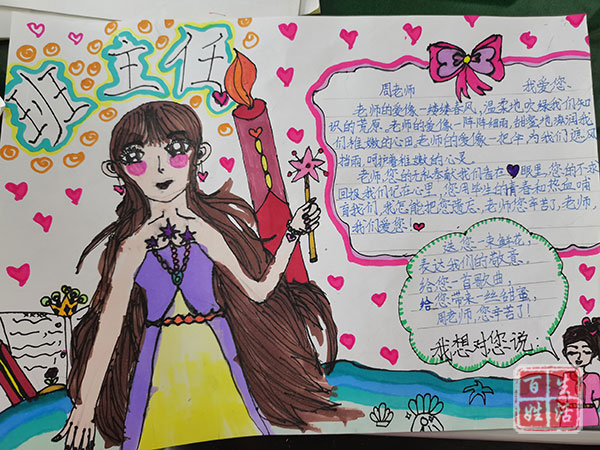 班主任
周老师 我爱您
老师的爱像一缕缕春风,温柔地吹绿我们知
识的荒原。老师的爱像一阵阵细雨,甜蜜地滋润我
们稚嫩的心田。老师的爱像一把伞,为我们遮风
挡雨,呵护着稚嫩的心灵。
老师,您的无私奉献我们看在眼里,您的不求
回报我们记在心里,您用毕生的青春和热血哺
育我们,我怎能把您遗忘,老师,您辛苦了,老师,
我们爱您。
送您一束鲜花,
表达我们的敬意。
给您一首歌曲,
给您带来一丝甜蜜,
周老师,您辛苦了!
我想对您说:
百姓生活